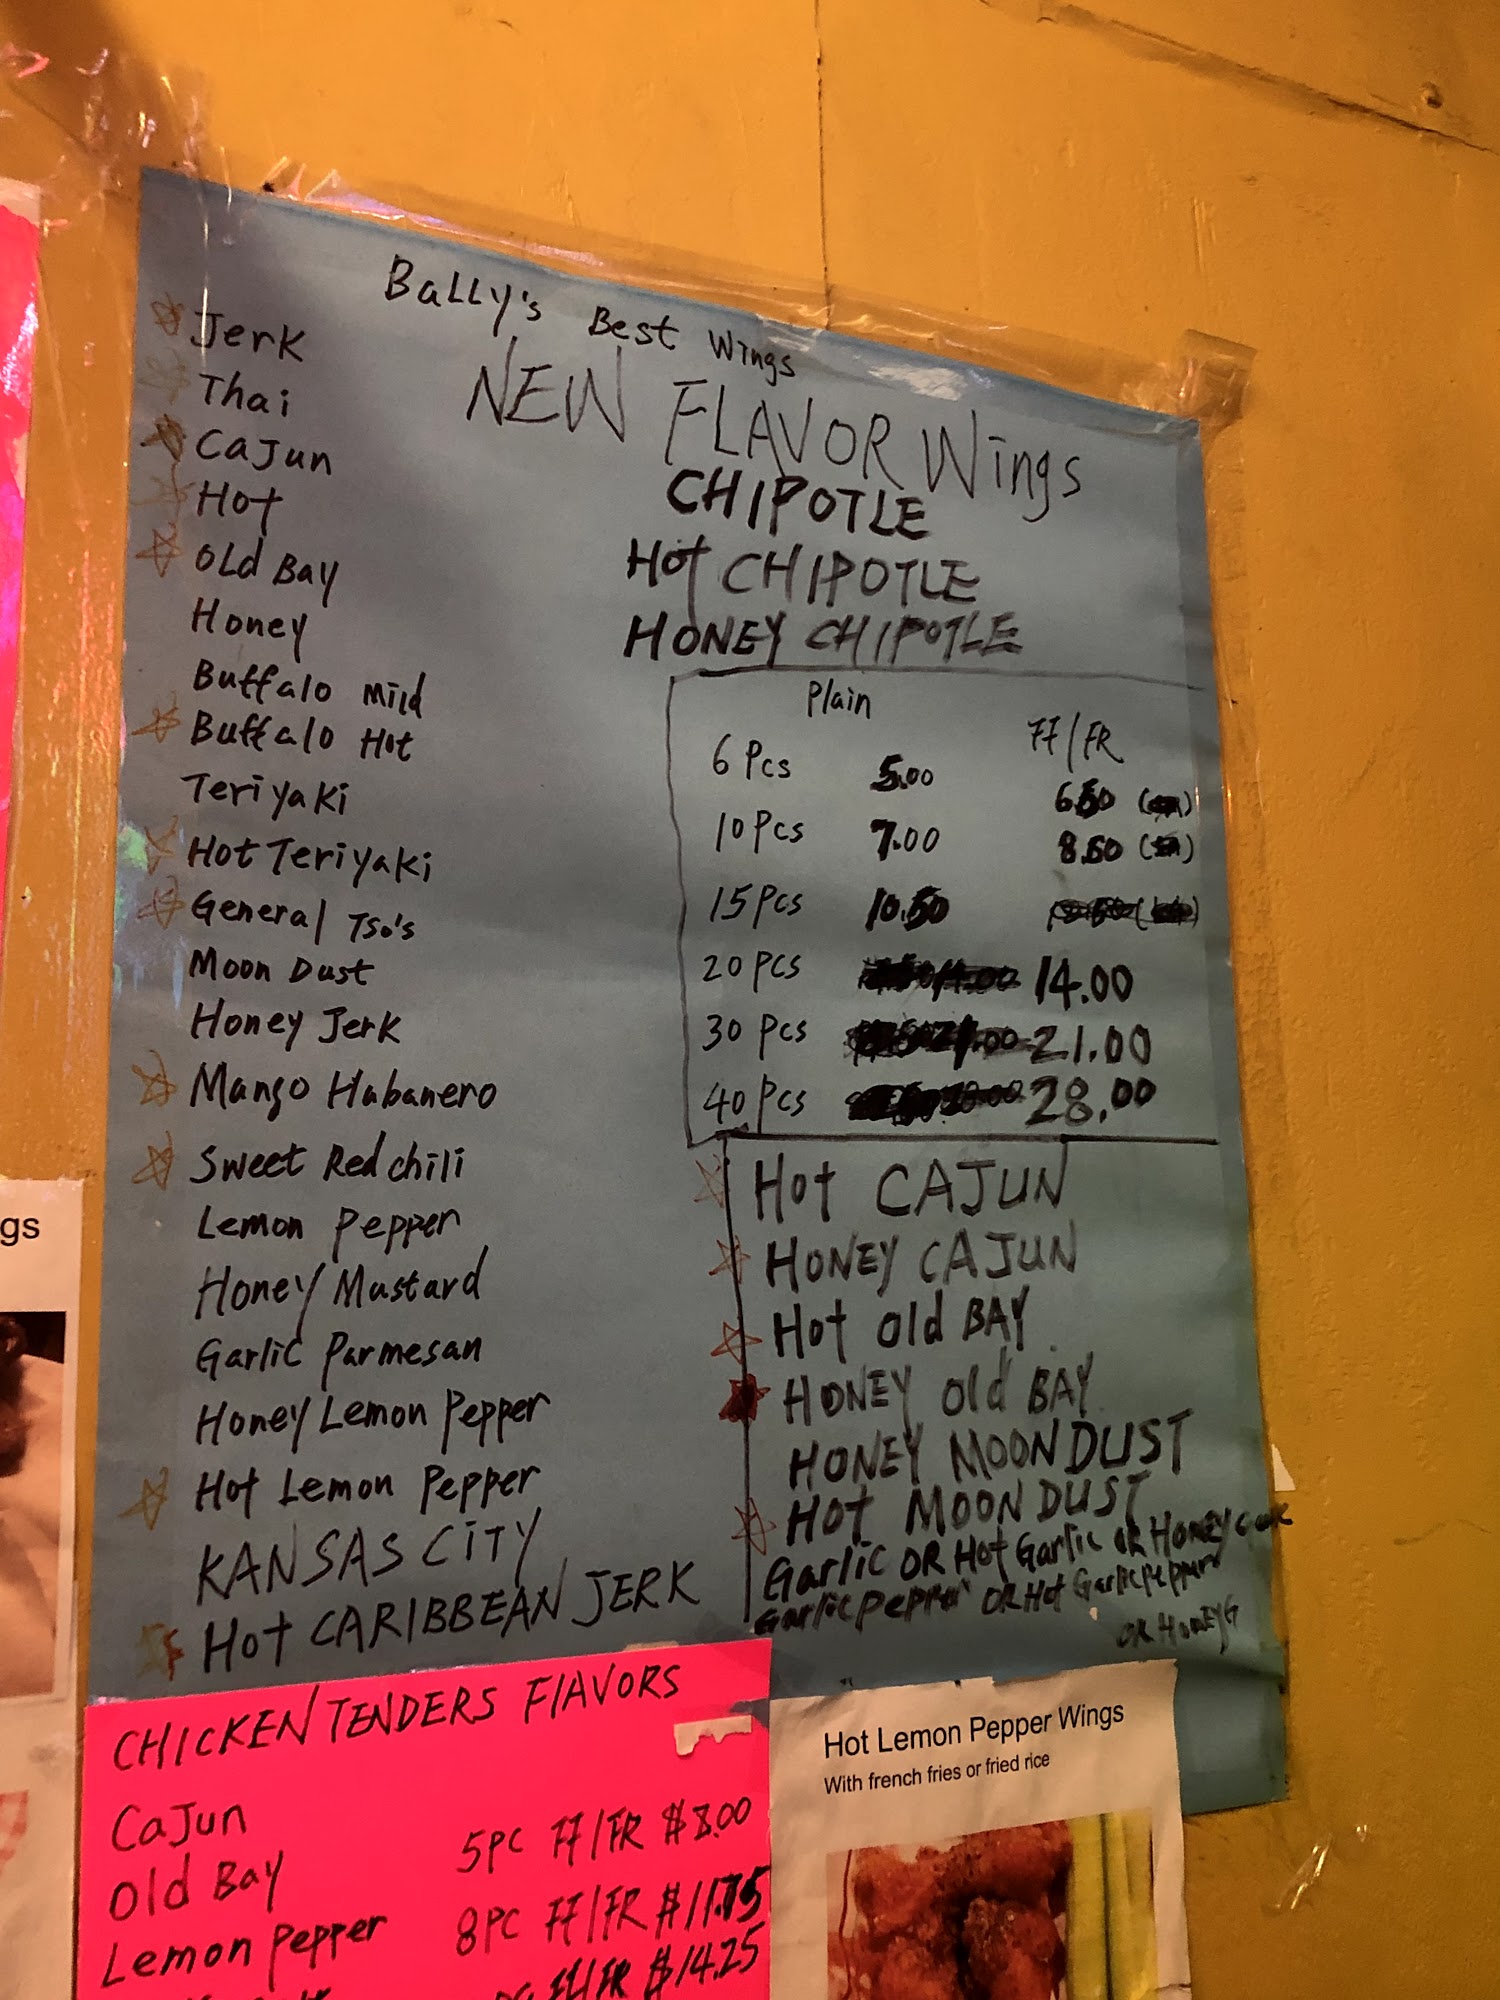 Bally's Best Wings
NEW FLAVOR Wings
CHIPOTLE
Hot CHIPOTLE
HONEY CHIPOTLE
Jerk
Thai
Cajun
Hot
Old Bay
Honey
Buffalo Mild
Buffalo Hot
Teriyaki
Hot Teriyaki
General Tso's
Moon Dust
Honey Jerk
Mango Habanero
Sweet Red chili
Lemon Pepper
Honey Mustard
Garlic Parmesan
Honey Lemon Pepper
Hot Lemon Pepper
KANSAS CITY
Hot CARIBBEAN JERK
Plain FF/FR
6 Pcs 5.00 6.50
10 Pcs 7.00 8.50
15 Pcs 10.50
20 Pcs 14.00
30 Pcs 21.00
40 Pcs 28.00
Hot CAJUN
HONEY CAJUN
Hot Old BAY
HONEY Old BAY
HONEY MOON DUST
HOT MOON DUST
Garlic OR Hot Garlic OR HONEY
Garlic pepper OR Hot Garlic pepper
OR HONEY G
CHICKEN TENDERS FLAVORS
Cajun
Old Bay
Lemon pepper
5PC FF/FR $8.00
8PC FF/FR $11.75
FF/FR $14.25
Hot Lemon Pepper Wings
With french fries or fried rice
gs